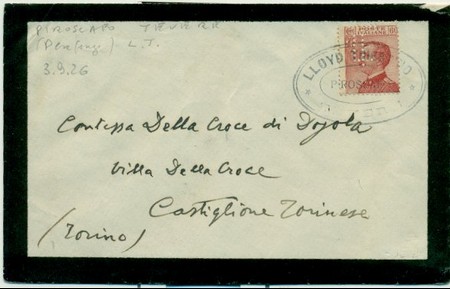 PIROSCAFO TEVERE
(Perfange) L.T.
3.9.26
LLOYD
PIROSCAFO
Contessa Della Croce di Dojola
Villa Della Croce
Castiglione Torinese
(Torino)